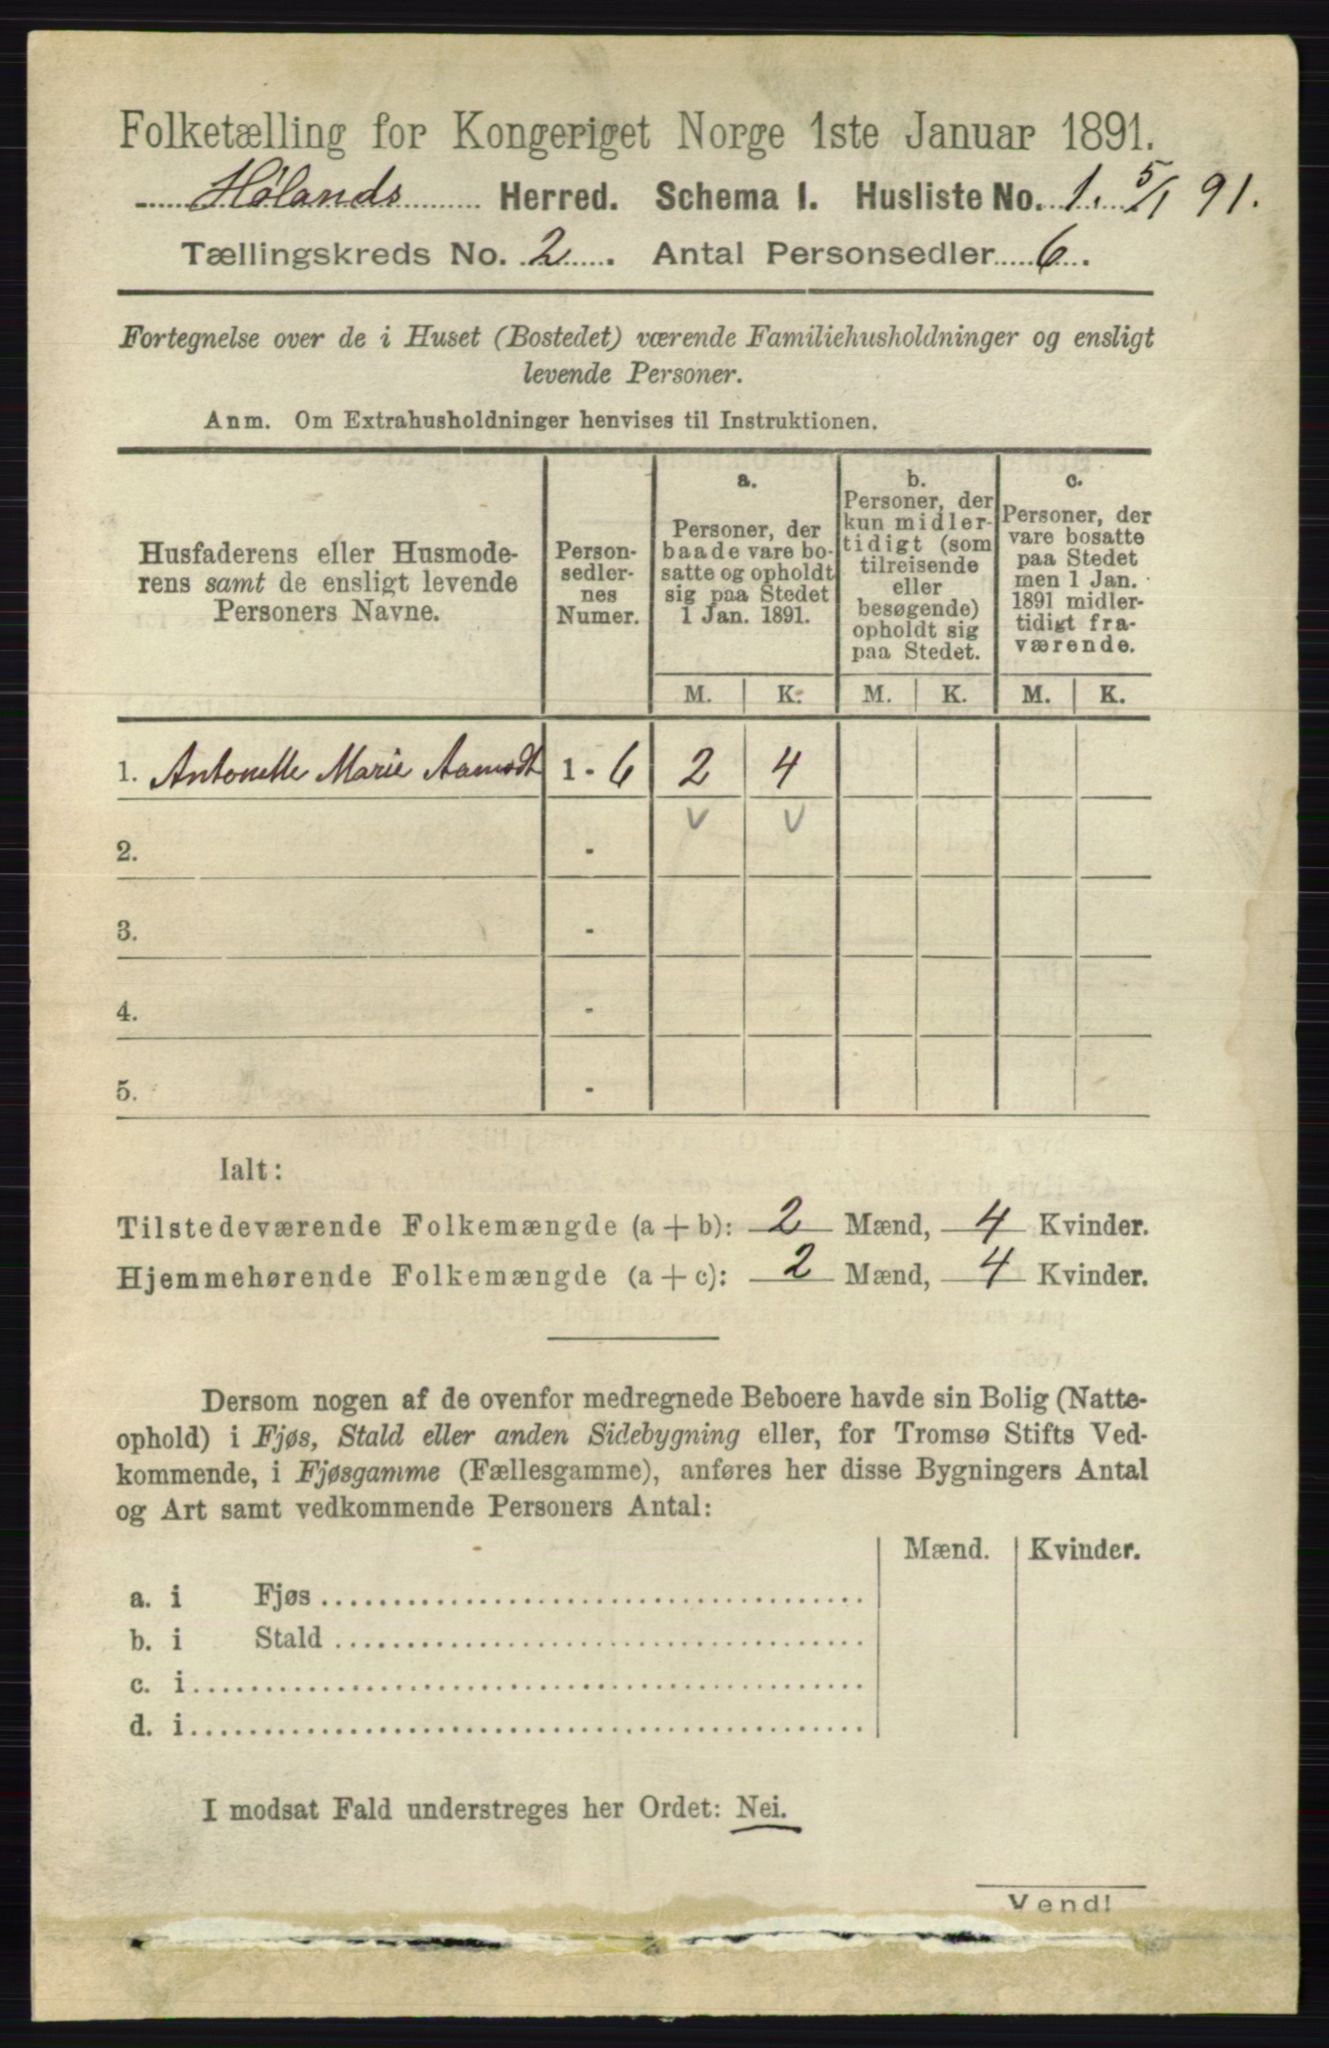 Folketælling for Kongeriget Norge 1ste Januar 1891.
Hølands Herred. Schema I. Husliste No. 1. 5/1 91.
Tællingskreds No. 2. Antal Personsedler 6.
Fortegnelse over de i Huset (Bostedet) værende Familiehusholdninger og ensligt
levende Personer.
Anm. Om Extrahusholdninger henvises til Instruktionen.
Husfaderens eller Husmode-
rens samt de ensligt levende
Personers Navne.
Person-
sedler-
nes
Numer.
a.
Personer, der
baade vare bo-
satte og opholdt
sig paa Stedet
1 Jan. 1891.
b.
Personer, der
kun midler-
tidigt (som
tilreisende
eller
besøgende)
opholdt sig
paa Stedet.
c.
Personer, der
vare bosatte
paa Stedet
men 1 Jan.
1891 midler-
tidigt fra-
værende.
M. K. M. K. M. K.
1. Antonette Marie Aamodt 1 - 6 2 4
v v
2. -
3. -
4. -
5. -
Ialt:
Tilstedeværende Folkemængde (a + b): 2 Mænd, 4 Kvinder.
Hjemmehørende Folkemængde (a + c): 2 Mænd, 4 Kvinder.
Dersom nogen af de ovenfor medregnede Beboere havde sin Bolig (Natte-
ophold) i Fjøs, Stald eller anden Sidebygning eller, for Tromsø Stifts Ved-
kommende, i Fjøsgamme (Fællesgamme), anføres her disse Bygningers Antal
og Art samt vedkommende Personers Antal:
Mænd. Kvinder.
a. i Fjøs
b. i Stald
c. i
d. i
I modsat Fald understreges her Ordet: Nei.
Vend!